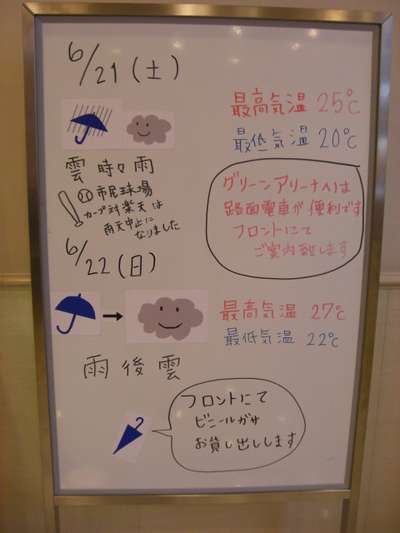 6/21(土)
最高気温 25℃
最低気温 20℃
雲時々雨
市民球場
カープ対楽天は
雨天中止に
なりました
グリーンアリーナへは
路面電車が便利です
フロントにて
ご案内致します
6/22(日)
最高気温 27℃
最低気温 22℃
雨後雲
フロントにて
ビニールガサ
お貸し出しします